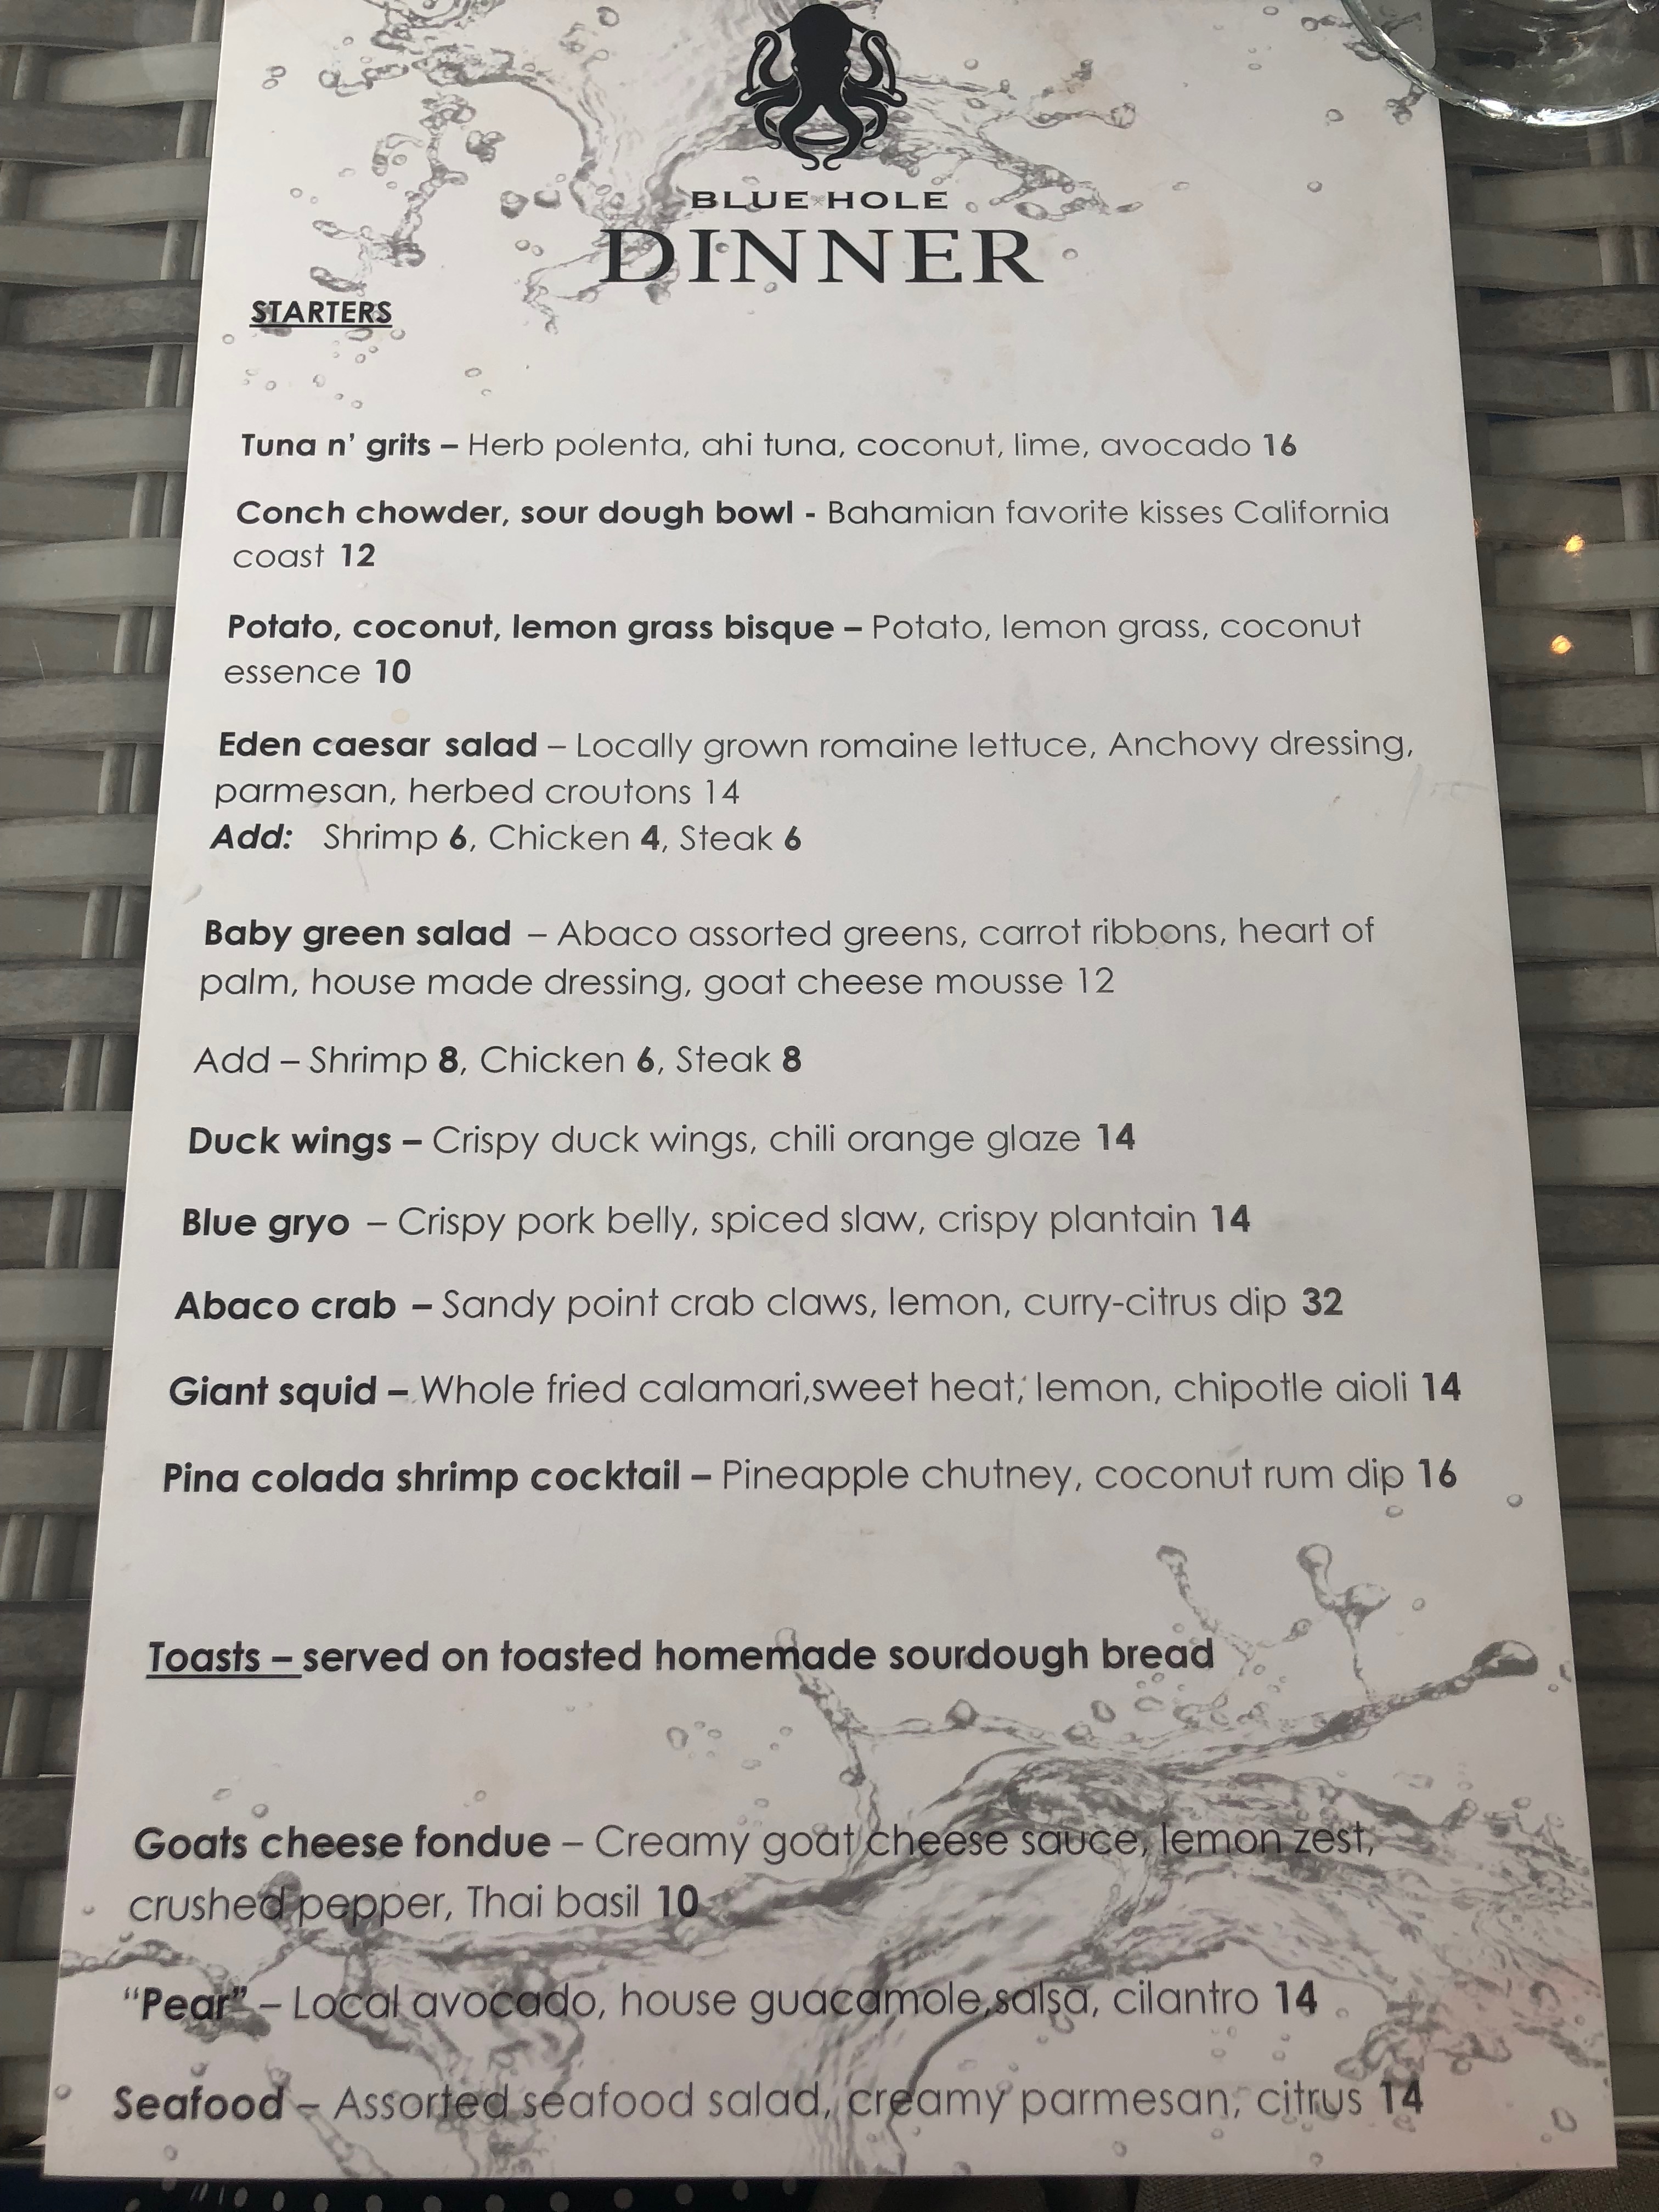 BLUE HOLE
DINNER
STARTERS
Tuna n' grits – Herb polenta, ahi tuna, coconut, lime, avocado 16
Conch chowder, sour dough bowl - Bahamian favorite kisses California
coast 12
Potato, coconut, lemon grass bisque – Potato, lemon grass, coconut
essence 10
Eden caesar salad – Locally grown romaine lettuce, Anchovy dressing,
parmesan, herbed croutons 14
Add: Shrimp 6, Chicken 4, Steak 6
Baby green salad – Abaco assorted greens, carrot ribbons, heart of
palm, house made dressing, goat cheese mousse 12
Add – Shrimp 8, Chicken 6, Steak 8
Duck wings – Crispy duck wings, chili orange glaze 14
Blue gryo – Crispy pork belly, spiced slaw, crispy plantain 14
Abaco crab – Sandy point crab claws, lemon, curry-citrus dip 32
Giant squid – Whole fried calamari,sweet heat, lemon, chipotle aioli 14
Pina colada shrimp cocktail – Pineapple chutney, coconut rum dip 16
Toasts – served on toasted homemade sourdough bread
Goats cheese fondue – Creamy goat cheese sauce, lemon zest,
crushed pepper, Thai basil 10
"Pear" – Local avocado, house guacamole,salsa, cilantro 14
Seafood – Assorted seafood salad, creamy parmesan, citrus 14